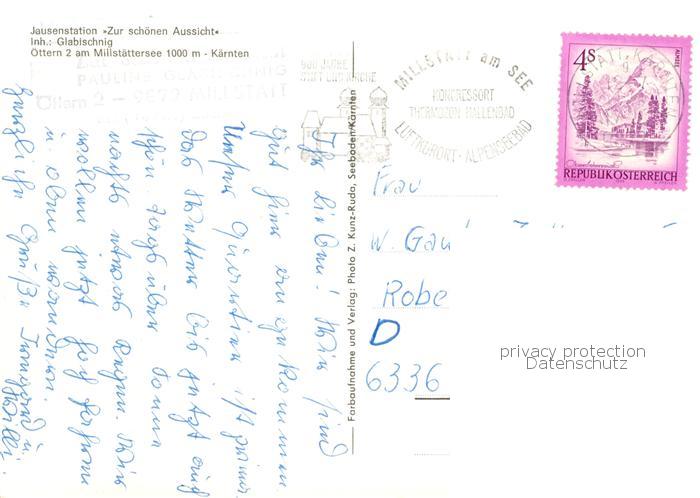 Jausenstation »Zur schönen Aussicht«
Inh.: Glabischnig
Öttern 2 am Millstättersee 1000 m - Kärnten
PAULINE GLABISCHNIG
Öttern 2 - 9872 MILLSTATT
900 JAHRE
STIFTSKIRCHE
MILLSTATT am SEE
KONGRESSORT
THERMOZON HALLENBAD
LUFTKURORT - ALPENSEEBAD
4S
ALMSEE
REPUBLIK ÖSTERREICH
Farbaufnahme und Verlag: Photo Z. Kunz-Rudo, Seeboden/Kärnten
Ihr Lieben! Wir sind
gut hier angekommen.
Unser Quartier ist prima.
Das Wetter bis jetzt auch
schön
nachts etwas Regen. Wir
wollen jetzt
u. oben wandern.
Herzliche Grüße
Frau
W. Gau
Robe
D
6336
privacy protection
Datenschutz